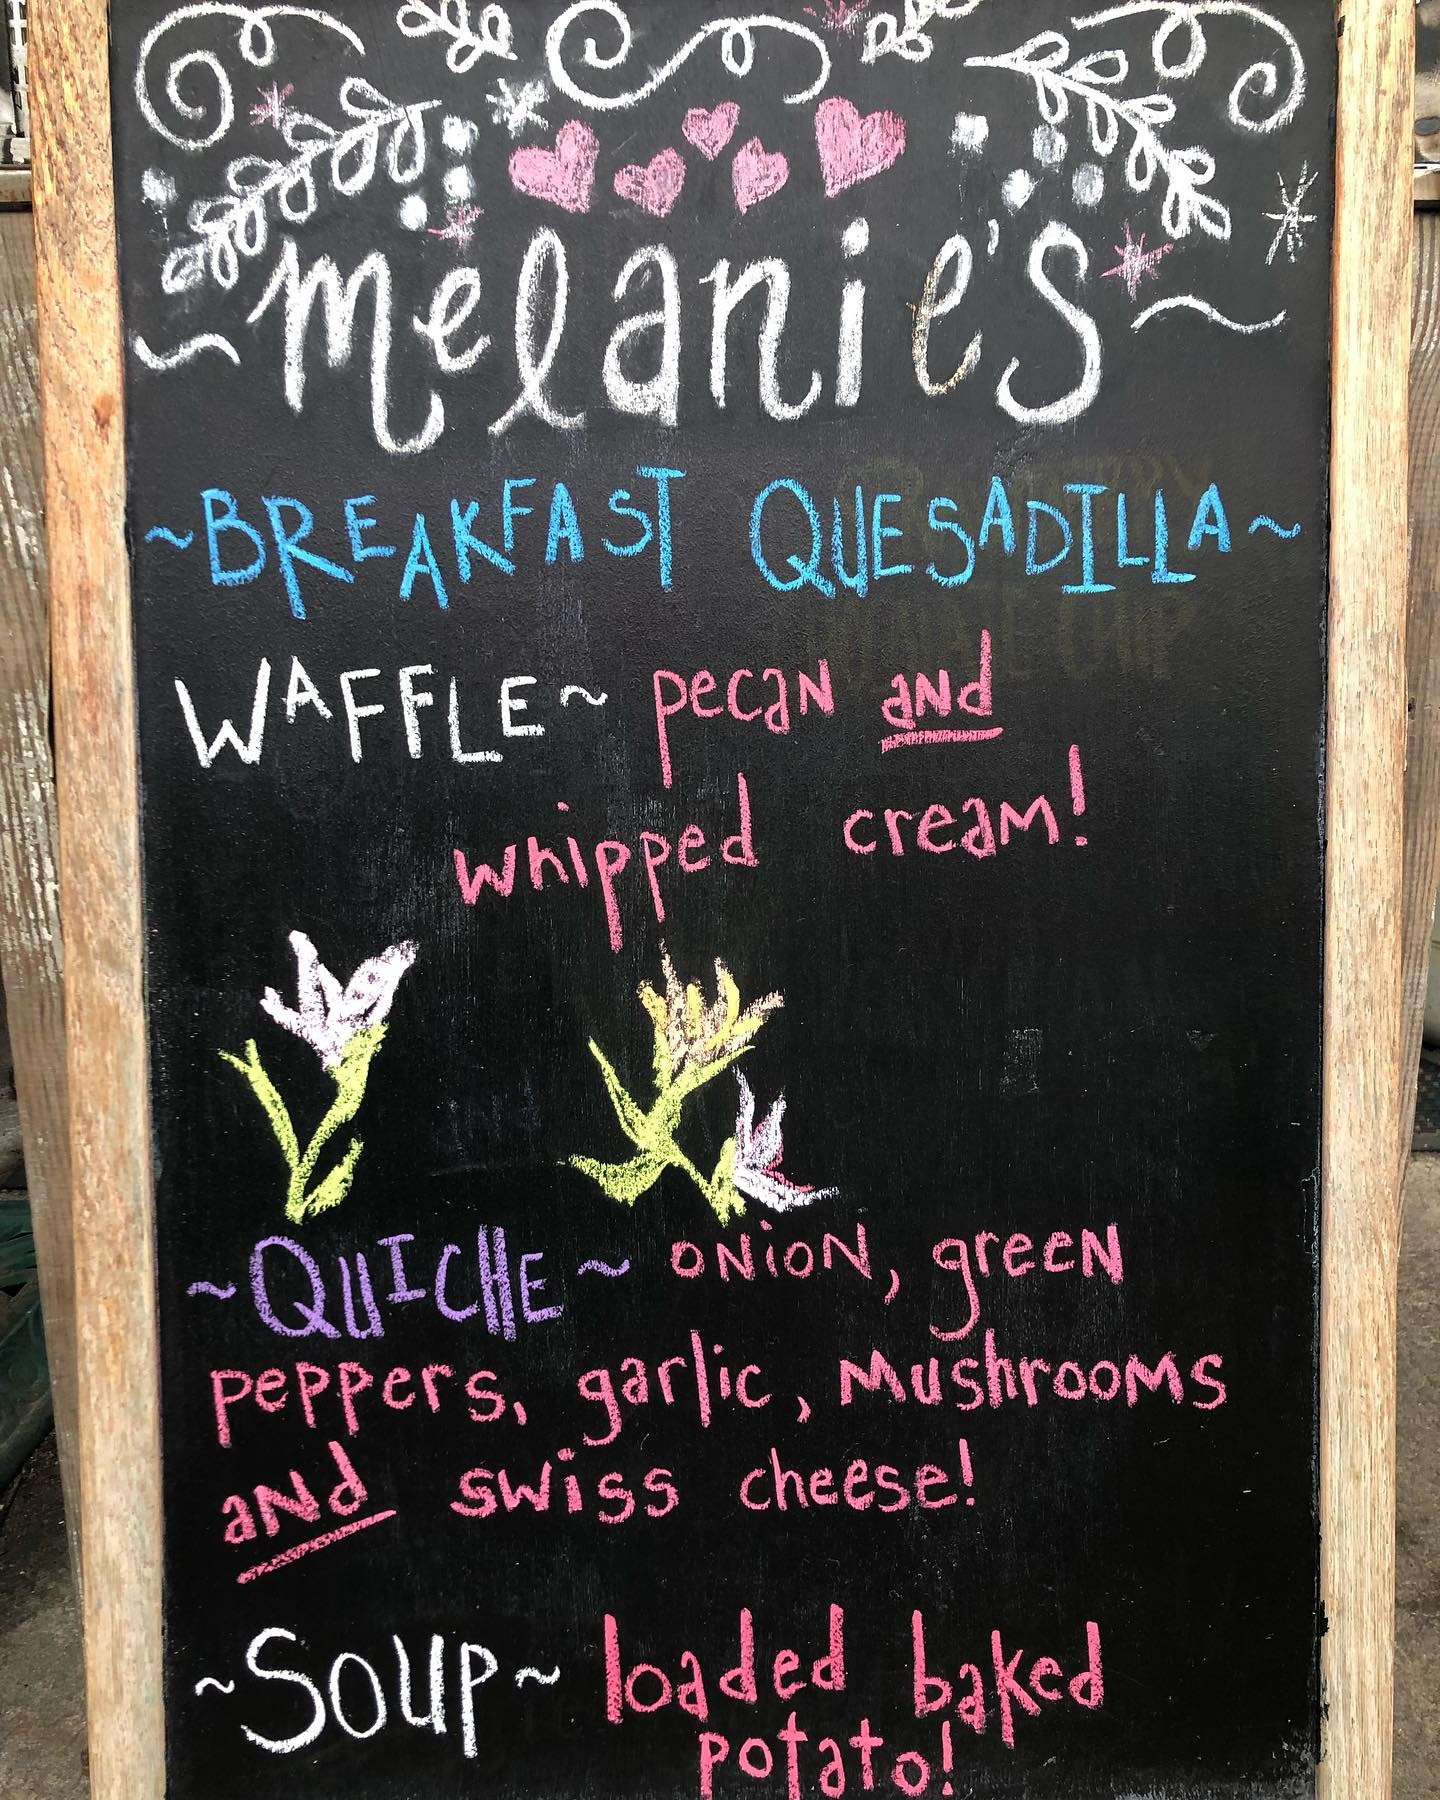 melanie's
~BREAKFAST QUESADILLA~
WAFFLE~ pecan and
whipped cream!
~QUICHE~ onion, green
peppers, garlic, Mushrooms
and swiss cheese!
~SOUP~ loaded baked
potato!